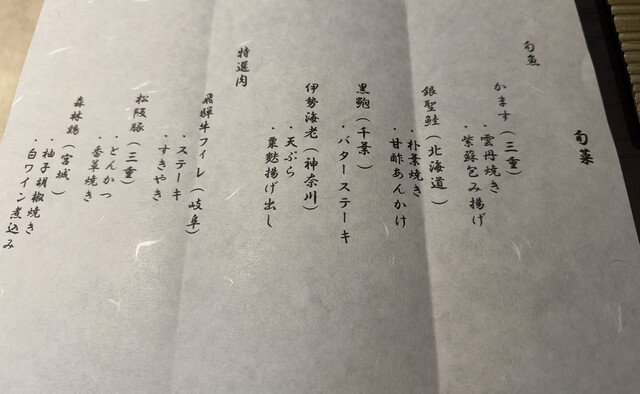 旬菜
旬魚
かます(三重)
・雲丹焼き
・紫蘇包み揚げ
銀聖鮭(北海道)
・朴葉焼き
・甘酢あんかけ
黒鮑(千葉)
・バターステーキ
伊勢海老(神奈川)
・天ぷら
・粟麩揚げ出し
特選肉
飛騨牛フィレ(岐阜)
・ステーキ
・すきやき
松阪豚(三重)
・とんかつ
・香草焼き
森林鶏(宮城)
・柚子胡椒焼き
・白ワイン煮込み